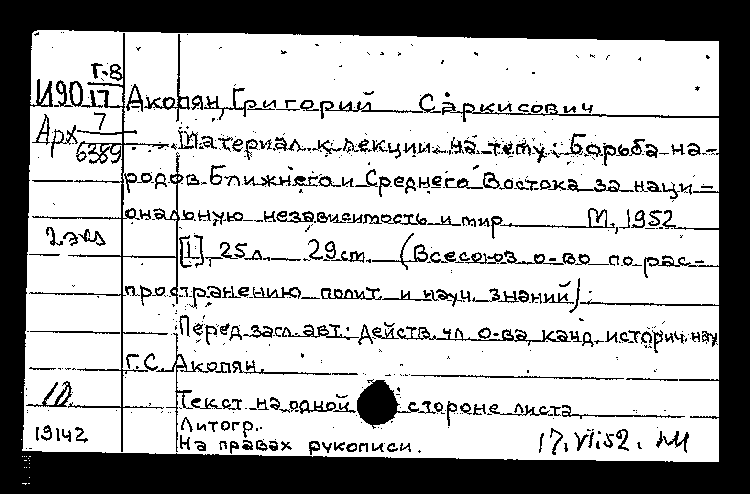 Г-8
И90 17
Акопян, Григорий Саркисович
Арх 7
6389
Материал к лекции на тему: Борьба на-
родов Ближнего и Среднего Востока за наци-
ональную независимость и мир. М., 1952
2.экз
[1], 25 л. 29 см. (Всесоюз. о-во по рас-
пространению полит. и науч. знаний).
Перед загл. авт.: Действ. чл. о-ва, канд. историч. нау
Г.С. Акопян.
10
Текст на одной стороне листа.
Литогр.
19142
На правах рукописи.
17.VII.52.